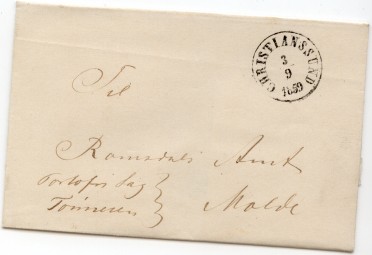 CHRISTIANSSUND
3
9
1859
Til
Romsdals Amt
Portofri Sag
Tönnesen
Molde